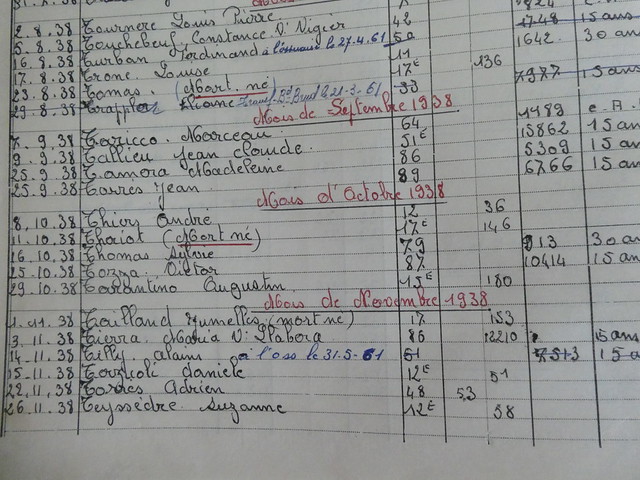 2.8.38 Tournere Louis Pierre 42 1748 15 ans
5.8.38 Touchebeuf Constance Vve Vigier 50 1642. 30 ans
16.8.38 Turban Ferdinand à l'ossuaire le 27.4.61 11
17.8.38 Trone. Louise 17E 136
23.8.38 Tomas. (Mort. né) 33 7977 15 ans
29.8.38 Eliane
Mois de Septembre 1938
7.9.38 Taricco. Marceau. 64 1489 C.A.
9.9.38 Tallieu Jean Claude. 51E 15862 15 ans
25.9.38 Tamora Madeleine 86 5309 15 ans
25.9.38 Tarres Jean 89 6766 15 ans
Mois d'Octobre 1938
8.10.38 Thiers André 12 36
11.10.38 Thoriot (Mort né) 17E 146
16.10.38 Thomas Sylvie 79 913 30 ans
25.10.38 Tozza. Victor 87 10414 15 ans
29.10.38 Tarantino Augustin. 15E 180
Mois de Novembre 1938
1.11.38 Tailland Jumelles (mort né) 17 153
3.11.38 Tierra. Maria V. Llabora 86 12210 15 ans
14.11.38 Tilly alain à l'oss le 31.5-61 61 7513 15 a
15.11.38 daniele 12E 51
22.11.38 Torres Adrien 48 53
26.11.38 Teyssèdre. Suzanne 12E 58